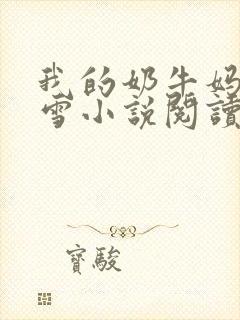 我的奶牛妈
雪小说閱讀
寶駿